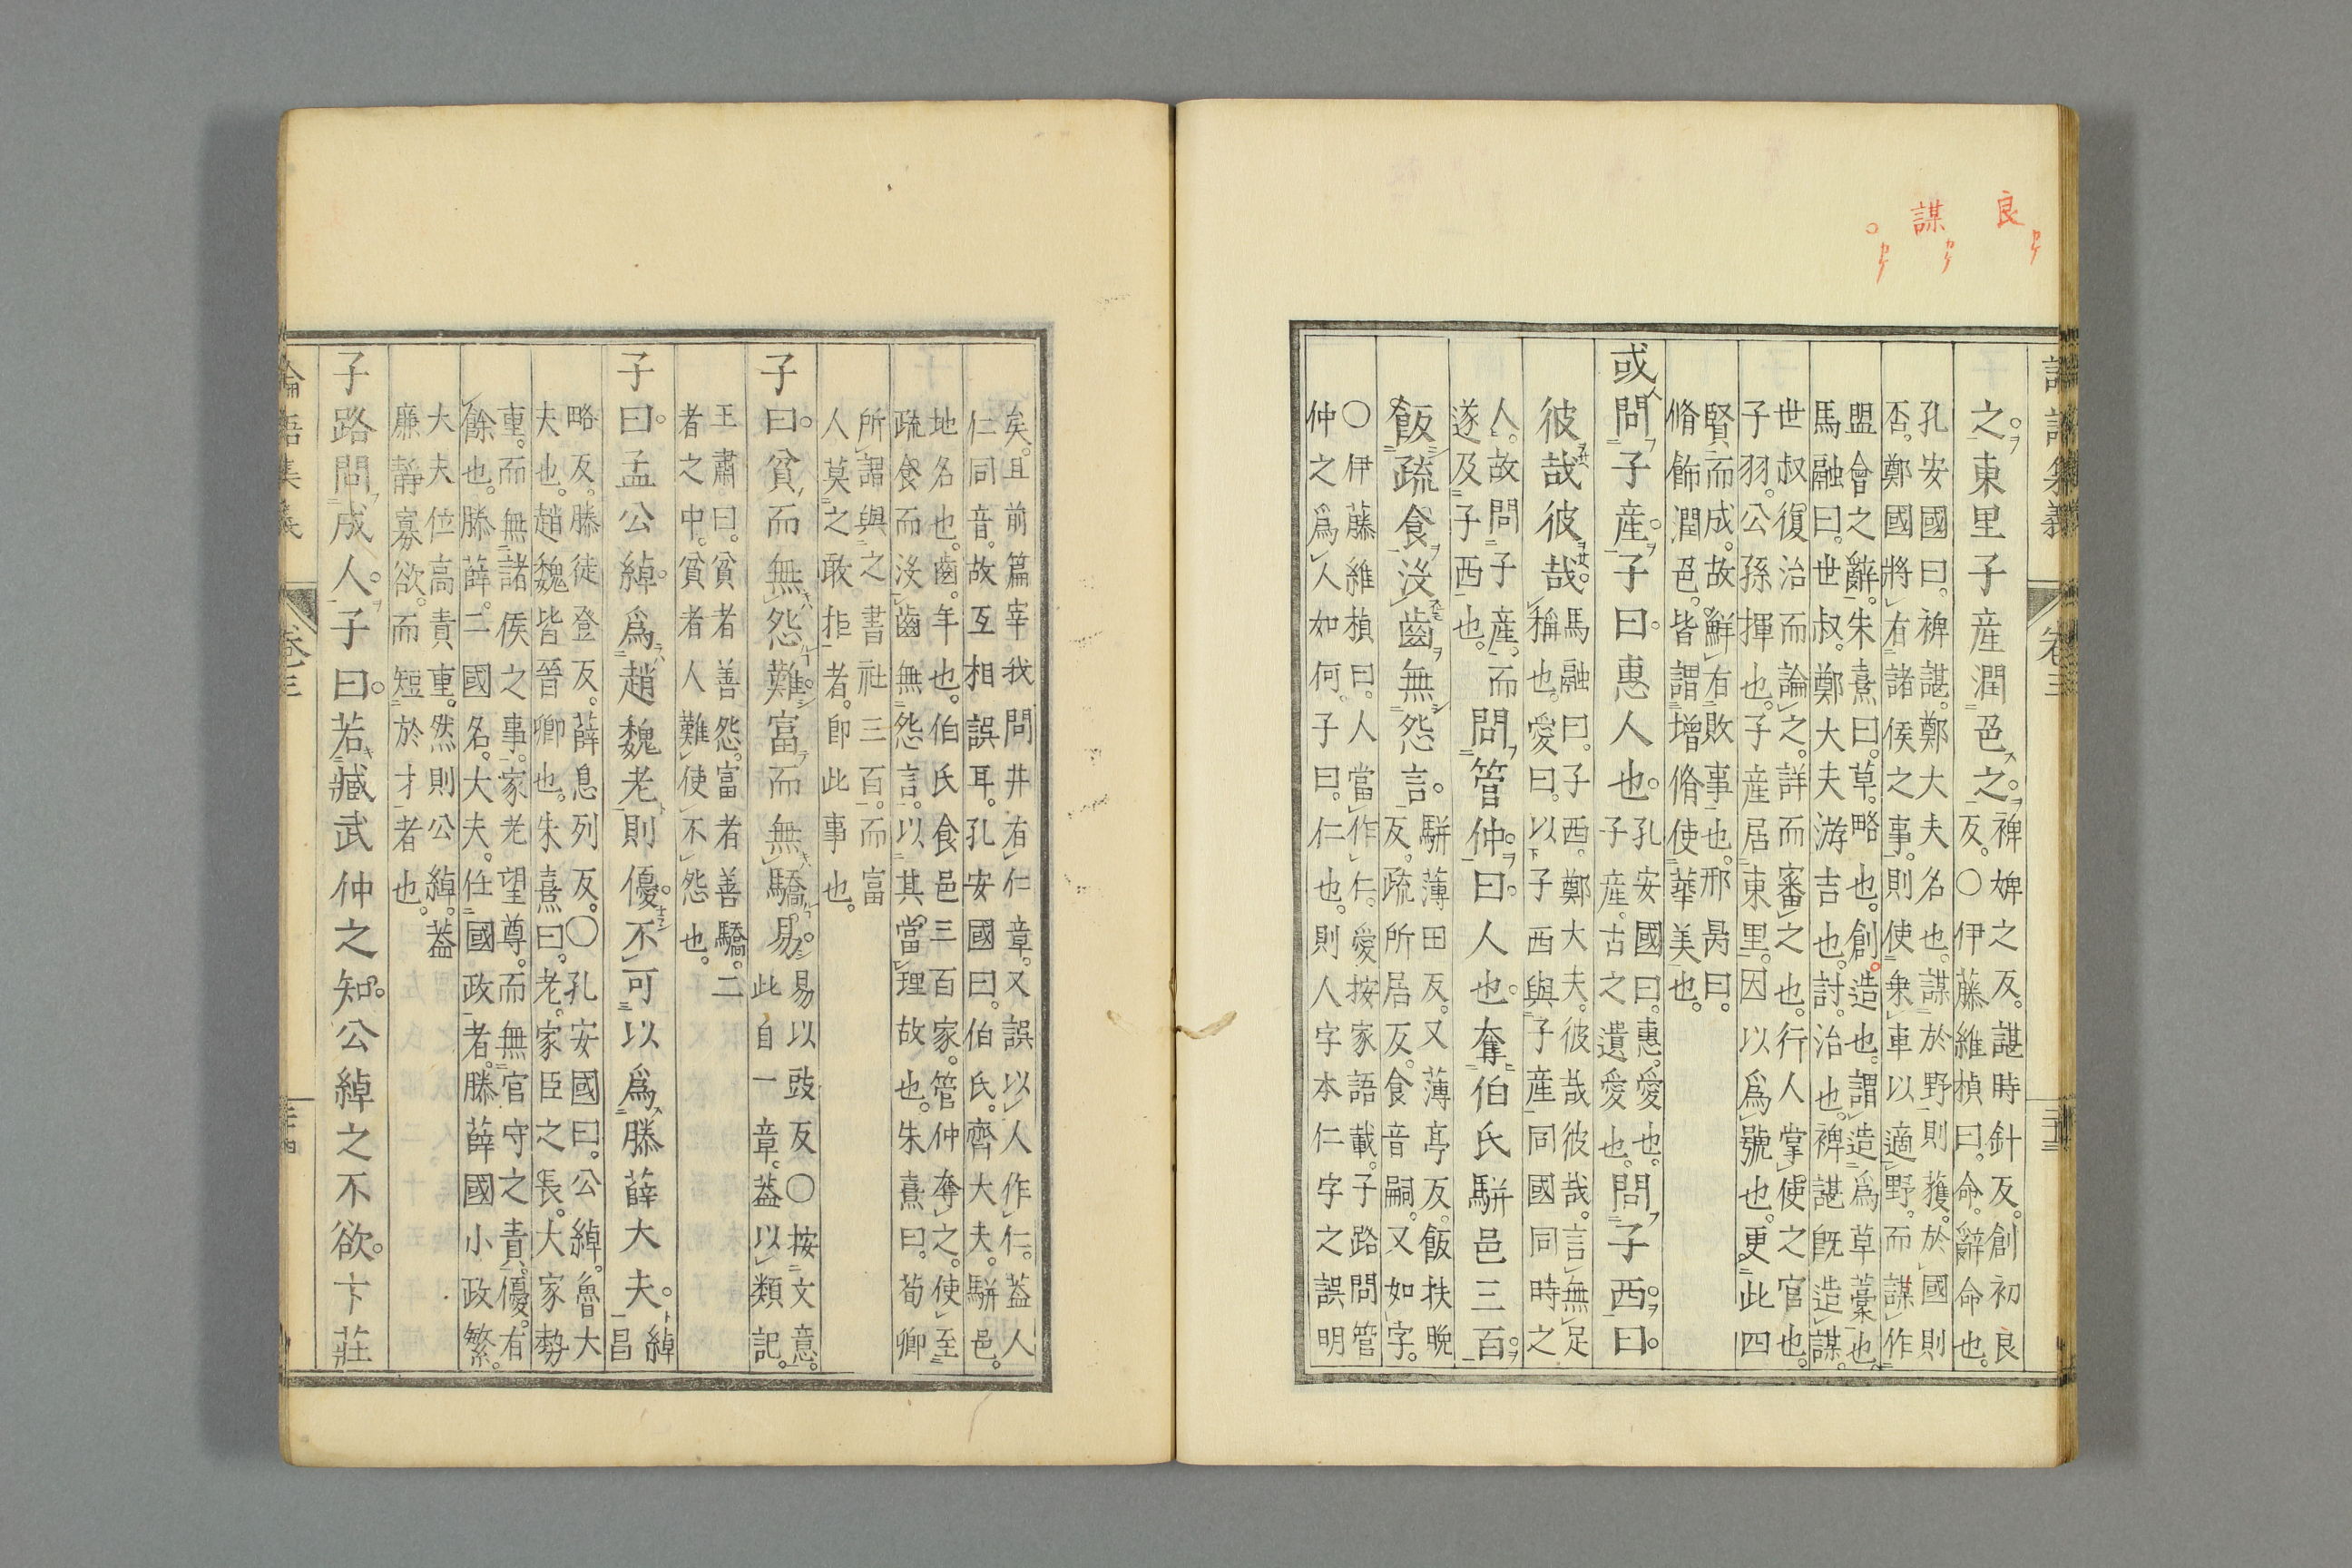 良
謀
論語集義 卷三 三十三
之東里子產潤色之。裨婢之反。諶時針反。創初良
反。○伊藤維楨曰。命。辭命也。
孔安國曰。裨諶。鄭大夫名也。謀於野則獲。於國則
否。鄭國將有諸侯之事。則使乘車以適野。而謀作
盟會之辭。朱熹曰。草。略也。創。造也。謂造爲草藁也。
馬融曰。世叔。鄭大夫游吉也。討。治也。裨諶既造謀。
世叔復治而論之。詳而審之也。行人掌使之官也。
子羽。公孫揮也。子產居東里。因以爲號也。更此四
賢而成。故鮮有敗事也。邢昺曰。
脩飾潤色。皆謂增脩使華美也。
或問子產。子曰。惠人也。孔安國曰。惠。愛也。
子產。古之遺愛也。問子西。曰。
彼哉彼哉。馬融曰。子西。鄭大夫。彼哉彼哉。言無足
稱也。愛曰。以子西與子產同國同時之
人。故問子產。而
遂及子西也。問管仲。曰。人也。奪伯氏駢邑三百。
飯疏食沒齒無怨言。駢薄田反。又薄亭反。飯扶晚
反。疏所居反。食音嗣。又如字。
○伊藤維楨曰。人當作仁。愛按家語載。子路問管
仲之爲人如何。子曰。仁也。則人字本仁字之誤明
矣。且前篇宰我問井有仁章。又誤以人作仁。蓋人
仁同音。故互相誤耳。孔安國曰。伯氏。齊大夫。駢邑。
地名也。齒。年也。伯氏食邑三百家。管仲奪之。使至
疏食而沒齒無怨言。以其當理故也。朱熹曰。荀卿
所謂與之書社三百。而富
人莫之敢拒者。卽此事也。
子曰。貧而無怨難。富而無驕易。易以豉反○按文意。
此自一章。蓋以類記。
王肅曰。貧者善怨。富者善驕。二
者之中。貧者人難使不怨也。
子曰。孟公綽。爲趙魏老則優。不可以爲滕薛大夫。綽
昌
略反。滕徒登反。薛息列反。○孔安國曰。公綽。魯大
夫也。趙魏皆晉卿也。朱熹曰。老。家臣之長。大家勢
重。而無諸侯之事。家老望尊。而無官守之責。優。有
餘也。滕薛。二國名。大夫。任國政者。滕薛國小政繁。
大夫位高責重。然則公綽。蓋
廉靜寡欲。而短於才者也。
子路問成人。子曰。若臧武仲之知。公綽之不欲。卞莊
論語集義 卷三 三十四